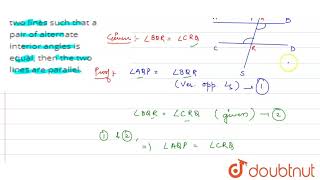 two lines such that a
pair of alternate
interior angles is
equal, then the two
lines are parallel.
Given :- ∠BQR = ∠CRQ
Proof :- ∠AQP = ∠BQR
(Ver. opp. ∠s) → ①
∠BQR = ∠CRQ (given) → ②
① & ②,
⇒ ∠AQP = ∠CRQ
B
C
R
D
S
doubtnut